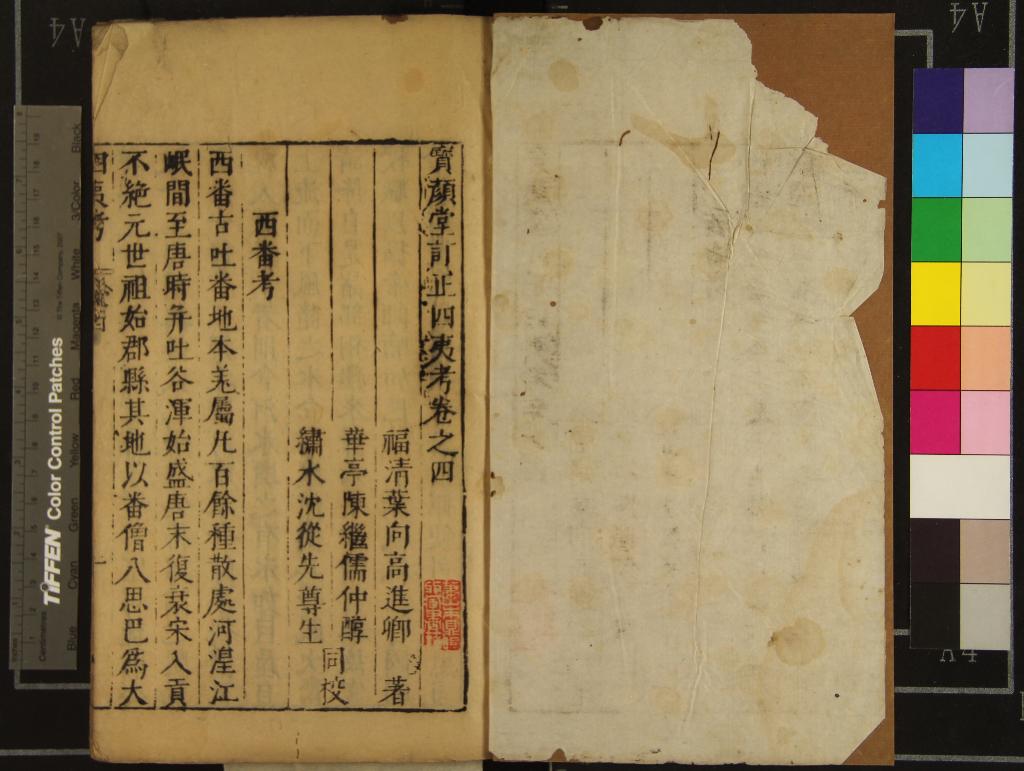 寶顏堂訂正四夷考卷之四
福清葉向高進卿 著
華亭陳繼儒仲醇
繡水沈從先尊生
同校
西番考
西番古吐番地本羌屬凡百餘種散處河湟江
岷間至唐時并吐谷渾始盛唐末復衰宋入貢
不絶元世祖始郡縣其地以番僧八思巴爲大
四夷考
TIFFEN Color Control Patches
© The Tiffen Company, 2007
Centimetres
Inches
Blue
Cyan
Green
Yellow
Red
Magenta
White
3/Color
Black
A4
A4
A4